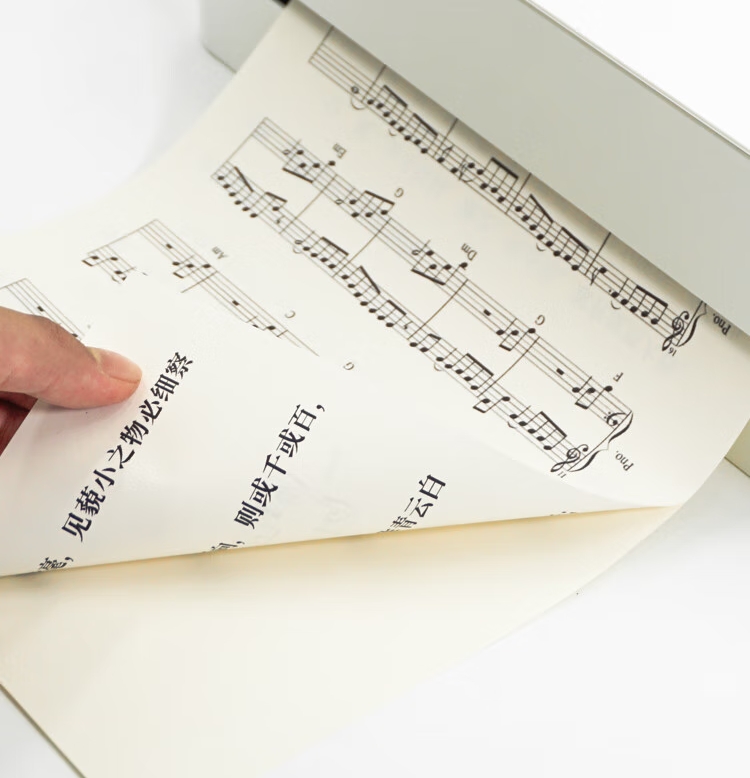 ，见藐小之物必细察
，则或千或百，
青云白
G C Am
F G Dm G Em
11
Pno.
16
Pno.